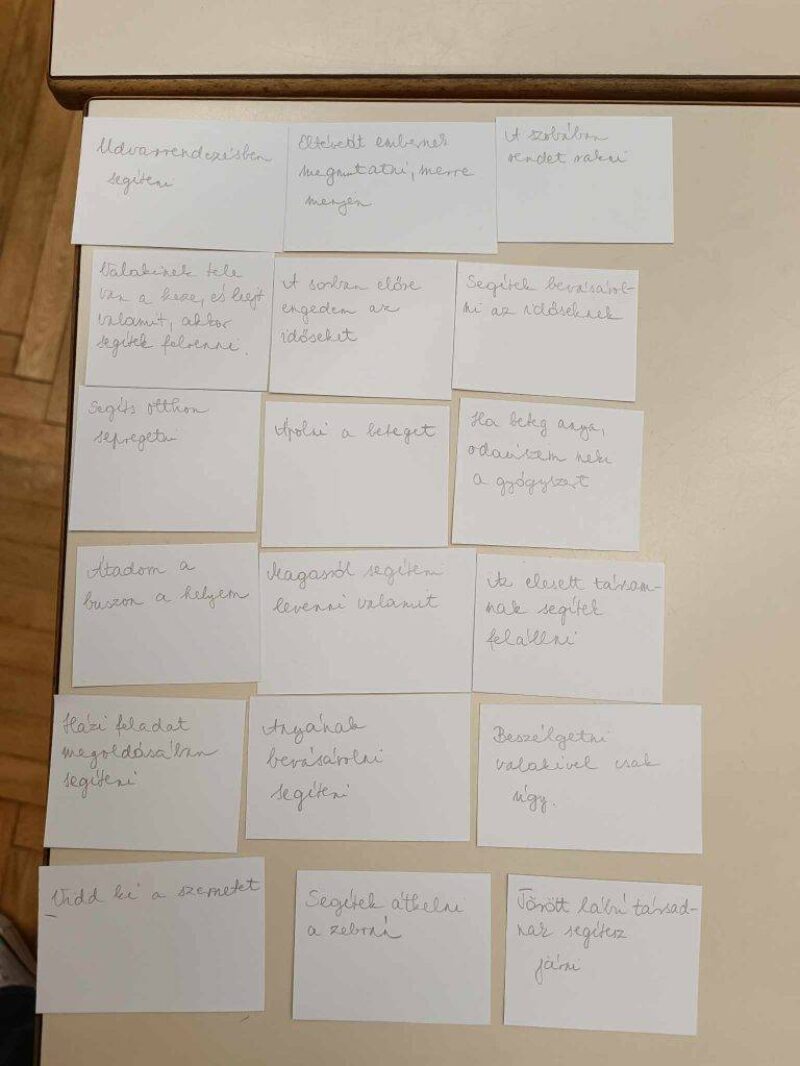 Udvarrendezésben
segíteni
Eltévedt embernek
megmutatni, merre
menjen
A szobában
rendet rakni
Valakinek tele
van a keze, és leejt
valamit, akkor
segítek felvenni.
A sorban előre
engedem az
időseket
Segítek bevásárol-
ni az időseknek
Segíts otthon
sepregetni
Ápolni a beteget
Ha beteg anya,
odaviszem neki
a gyógyszert
Átadom a
buszon a helyem
Magasról segíteni
levenni valamit
Az elesett társam-
nak segítek
felállni
Házi feladat
megoldásában
segíteni
Anyának
bevásárolni
segíteni
Beszélgetni
valakivel csak
úgy.
Vidd ki a szemetet
Segítek átkelni
a zebrán
Törött lábú társad-
nak segítesz
járni